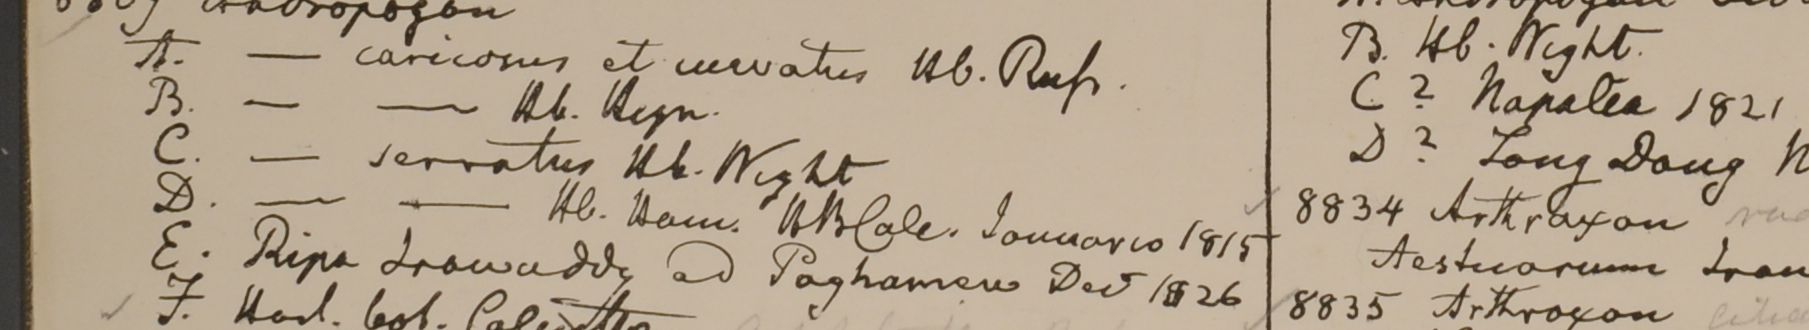 Andropogon
A. — caricosus et serratus Hb. Russ.
B. — — Hb. Heyn.
C. — serratus Hb. Wight
D. — — Hb. Ham. HBCalc. Januario 1815
E. Ripa Irawaddy ad Paghamew Dec 1826
F. Hort. bot. Calcutta
B. Hb. Wight.
C? Napalea 1821
D? Tong Dong
8834 Arthraxon
Aestuarium
8835 Arthraxon